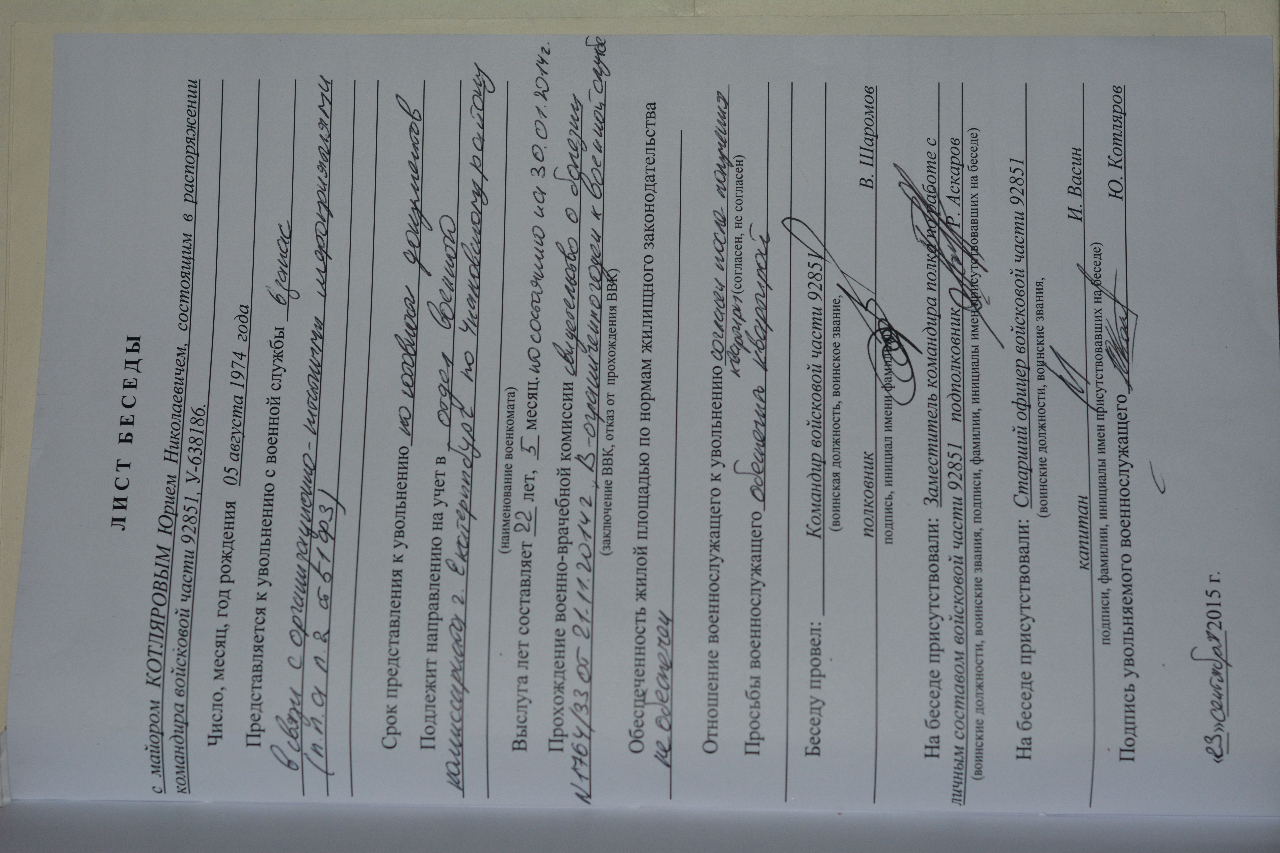 ЛИСТ БЕСЕДЫ
с майором КОТЛЯРОВЫМ Юрием Николаевичем, состоящим в распоряжении
командира войсковой части 92851, У-638186.
Число, месяц, год рождения 05 августа 1974 года
Представляется к увольнению с военной службы в запас
в связи с организационно-штатными мероприятиями
(п.п. а п. 2 ст 51 ФЗ)
Срок представления к увольнению по подвозу документов
Подлежит направлению на учет в отдел военного
комиссариата г. Екатеринбург по Чкаловскому району
(наименование военкомата)
Выслуга лет составляет 22 лет, 5 месяц. по состоянию на 30.01.2014г.
Прохождение военно-врачебной комиссии свидетельство о болезни
N1764/33 от 21.11.2014г. „В-ограниченно годен к военной службе
(заключение ВВК, отказ от прохождения ВВК)
Обеспеченность жилой площадью по нормам жилищного законодательства
не обеспечен
Отношение военнослужащего к увольнению согласен после получения
квартиры (согласен, не согласен)
Просьбы военнослужащего обеспечить квартирой
Беседу провел: Командир войсковой части 92851
(воинская должность, воинское звание,
полковник В. Шаромов
подпись, инициал имени фамилия)
На беседе присутствовали: Заместитель командира полка по работе с
личным составом войсковой части 92851 подполковник Р. Аскаров
(воинские должности, воинские звания, подписи, фамилии, инициалы имен присутствовавших на беседе)
На беседе присутствовали: Старший офицер войсковой части 92851
(воинские должности, воинские звания,
капитан И. Васин
подписи, фамилии, инициалы имен присутствовавших на беседе)
Подпись увольняемого военнослужащего Ю. Котляров
«23» сентября 2015 г.